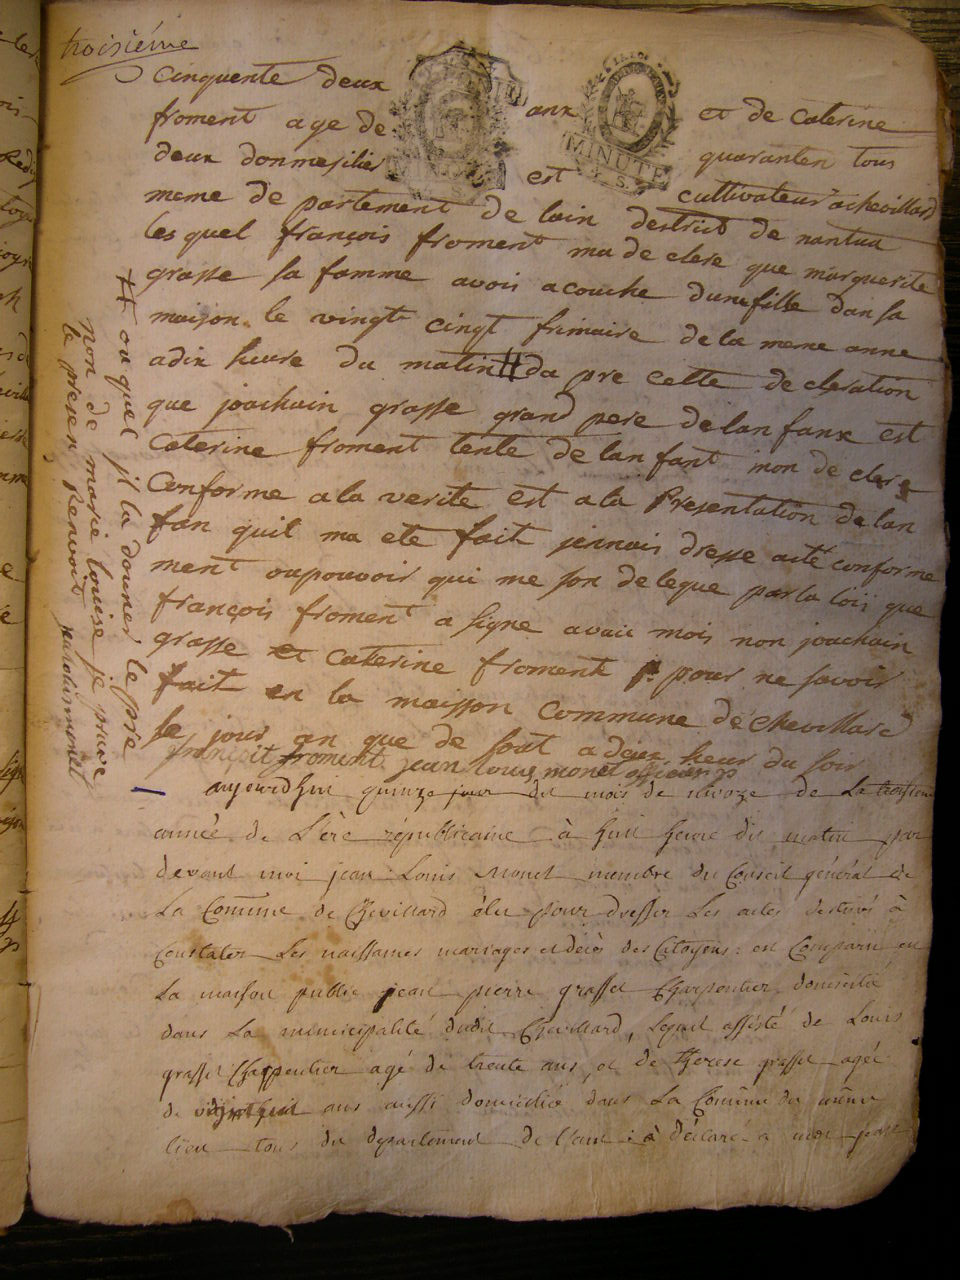 troisiéme
cinquente deux anx et de caterine
froment age de quaranten tous
deux donmesilier est cultivateur a chevillard
meme de partement de lain destrict de nantua
les quel françois froment ma de clere que marguerite
grasse sa famme avois acouche dune fille dan sa
maison le vingt cingt frimaire de la meme anne
a dix heure du matin # da pre cette de cleration
que joachain grasse grand pere de lan fanx est
caterine froment tente de lan fant mon de clere
conforme a la verite est a la presentation de lan
fan quil ma ete fait jennais dresse acte conforme
ment oupouvoir qui me son deleque par la loii que
françois froment a signe avaic mois non joachain
grasse et caterine froment pour ne savoir
fait en la maisson commune de chevillard
le jour an que de sout a deux heur du soir
françoit froment jean louis monet officier p
# ou quel jl la donner le pre
non de marie louise je pruve
le presen Renvoit jean louis monet
MINUTE
MINUTE
aujourdhui quinze jour du mois de nivoze de La troisieme
année de L'ère républicaine à huit heure du matin par
devant moi jean Louis Monet membre du Conseil général de
La Commune de Chevillard élu pour dresser Les actes destinés à
Constater Les naissances mariages et décès des Citoyens : est Comparu en
La maison public jean pierre grasset Charpentier domicilié
dans La municipalité dudit Chevillard, Lequel assisté de Louis
grasset Charpentier agé de trente ans, et de therese grasset agée
de vingt huit ans aussi domiciliée dans La Commune du même
lieu tous du département de l'ain : à déclaré a moi jean